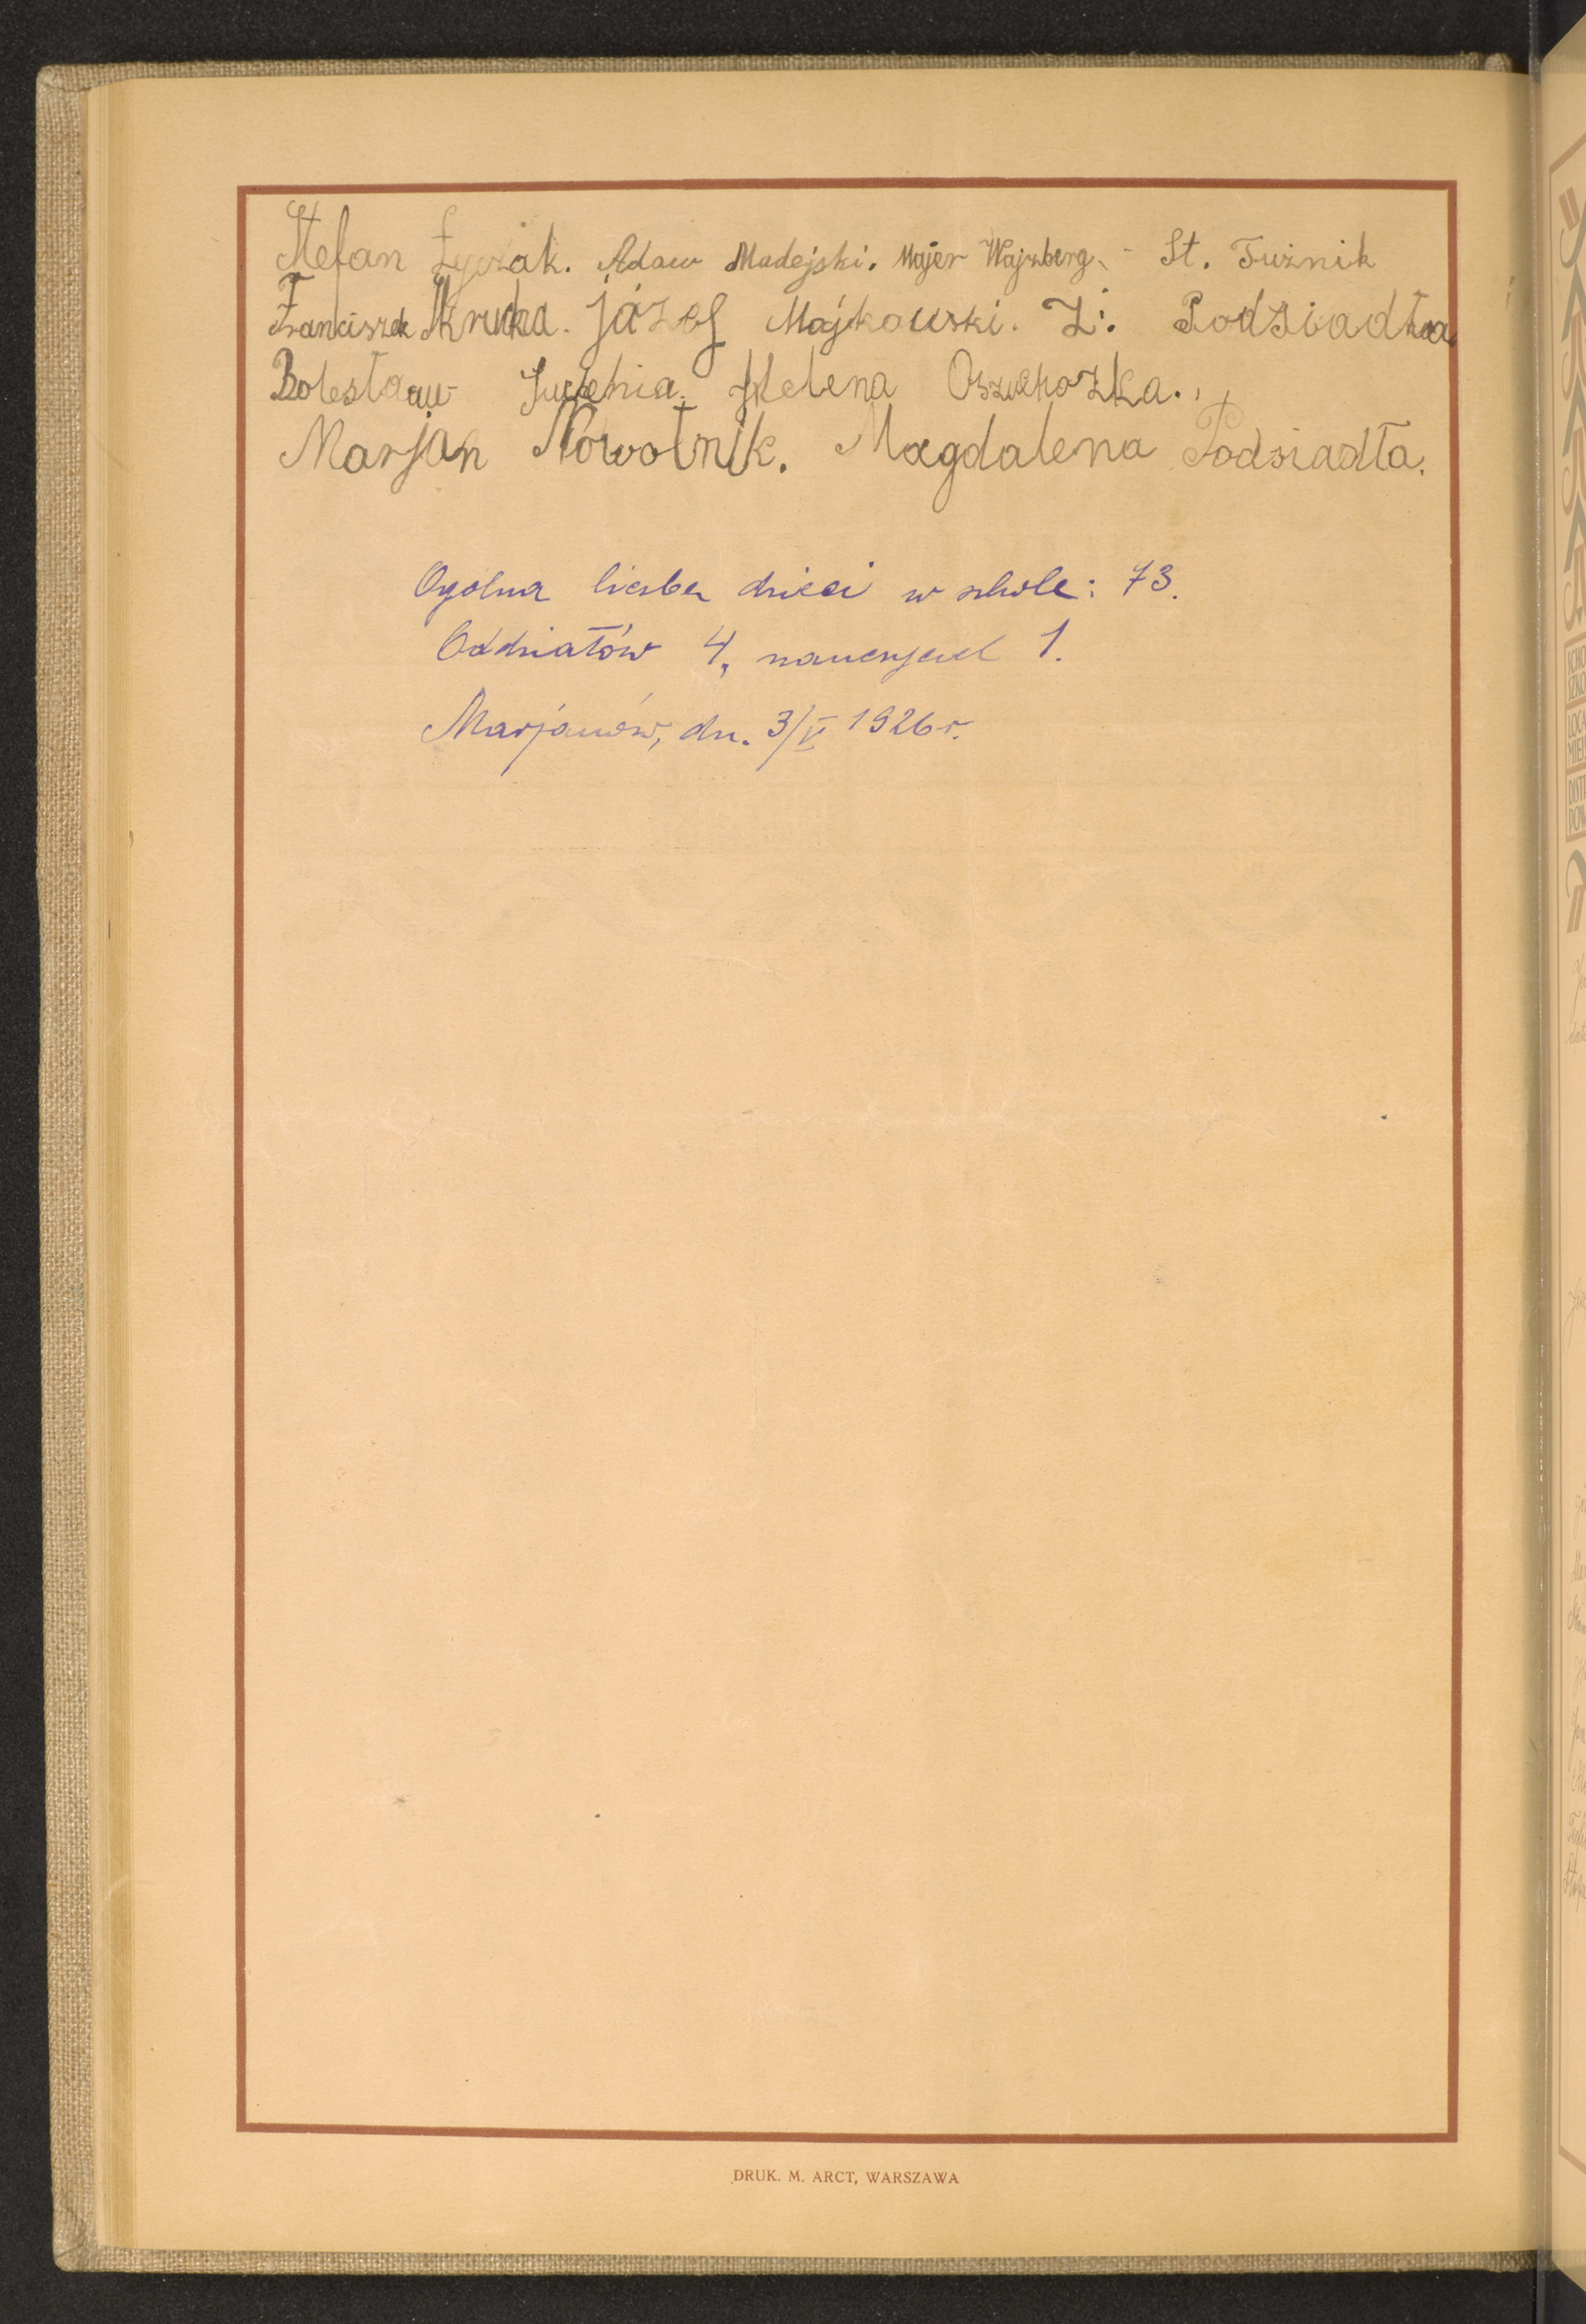 Stefan Łyczak. Adam Madejski. Majer Wajnberg. - St. Tużnik
Franciszek Kruka. józef Majkowski. Z. Podsiadła.
Bolesław Helena
Marjan Nowotnik. Magdalena Podsiadła.
Ogólna liczba dzieci w szkole: 73.
Oddziałów 4, nauczyciel 1.
Marjanów, dn. 3/V 1926 r.
DRUK. M. ARCT, WARSZAWA